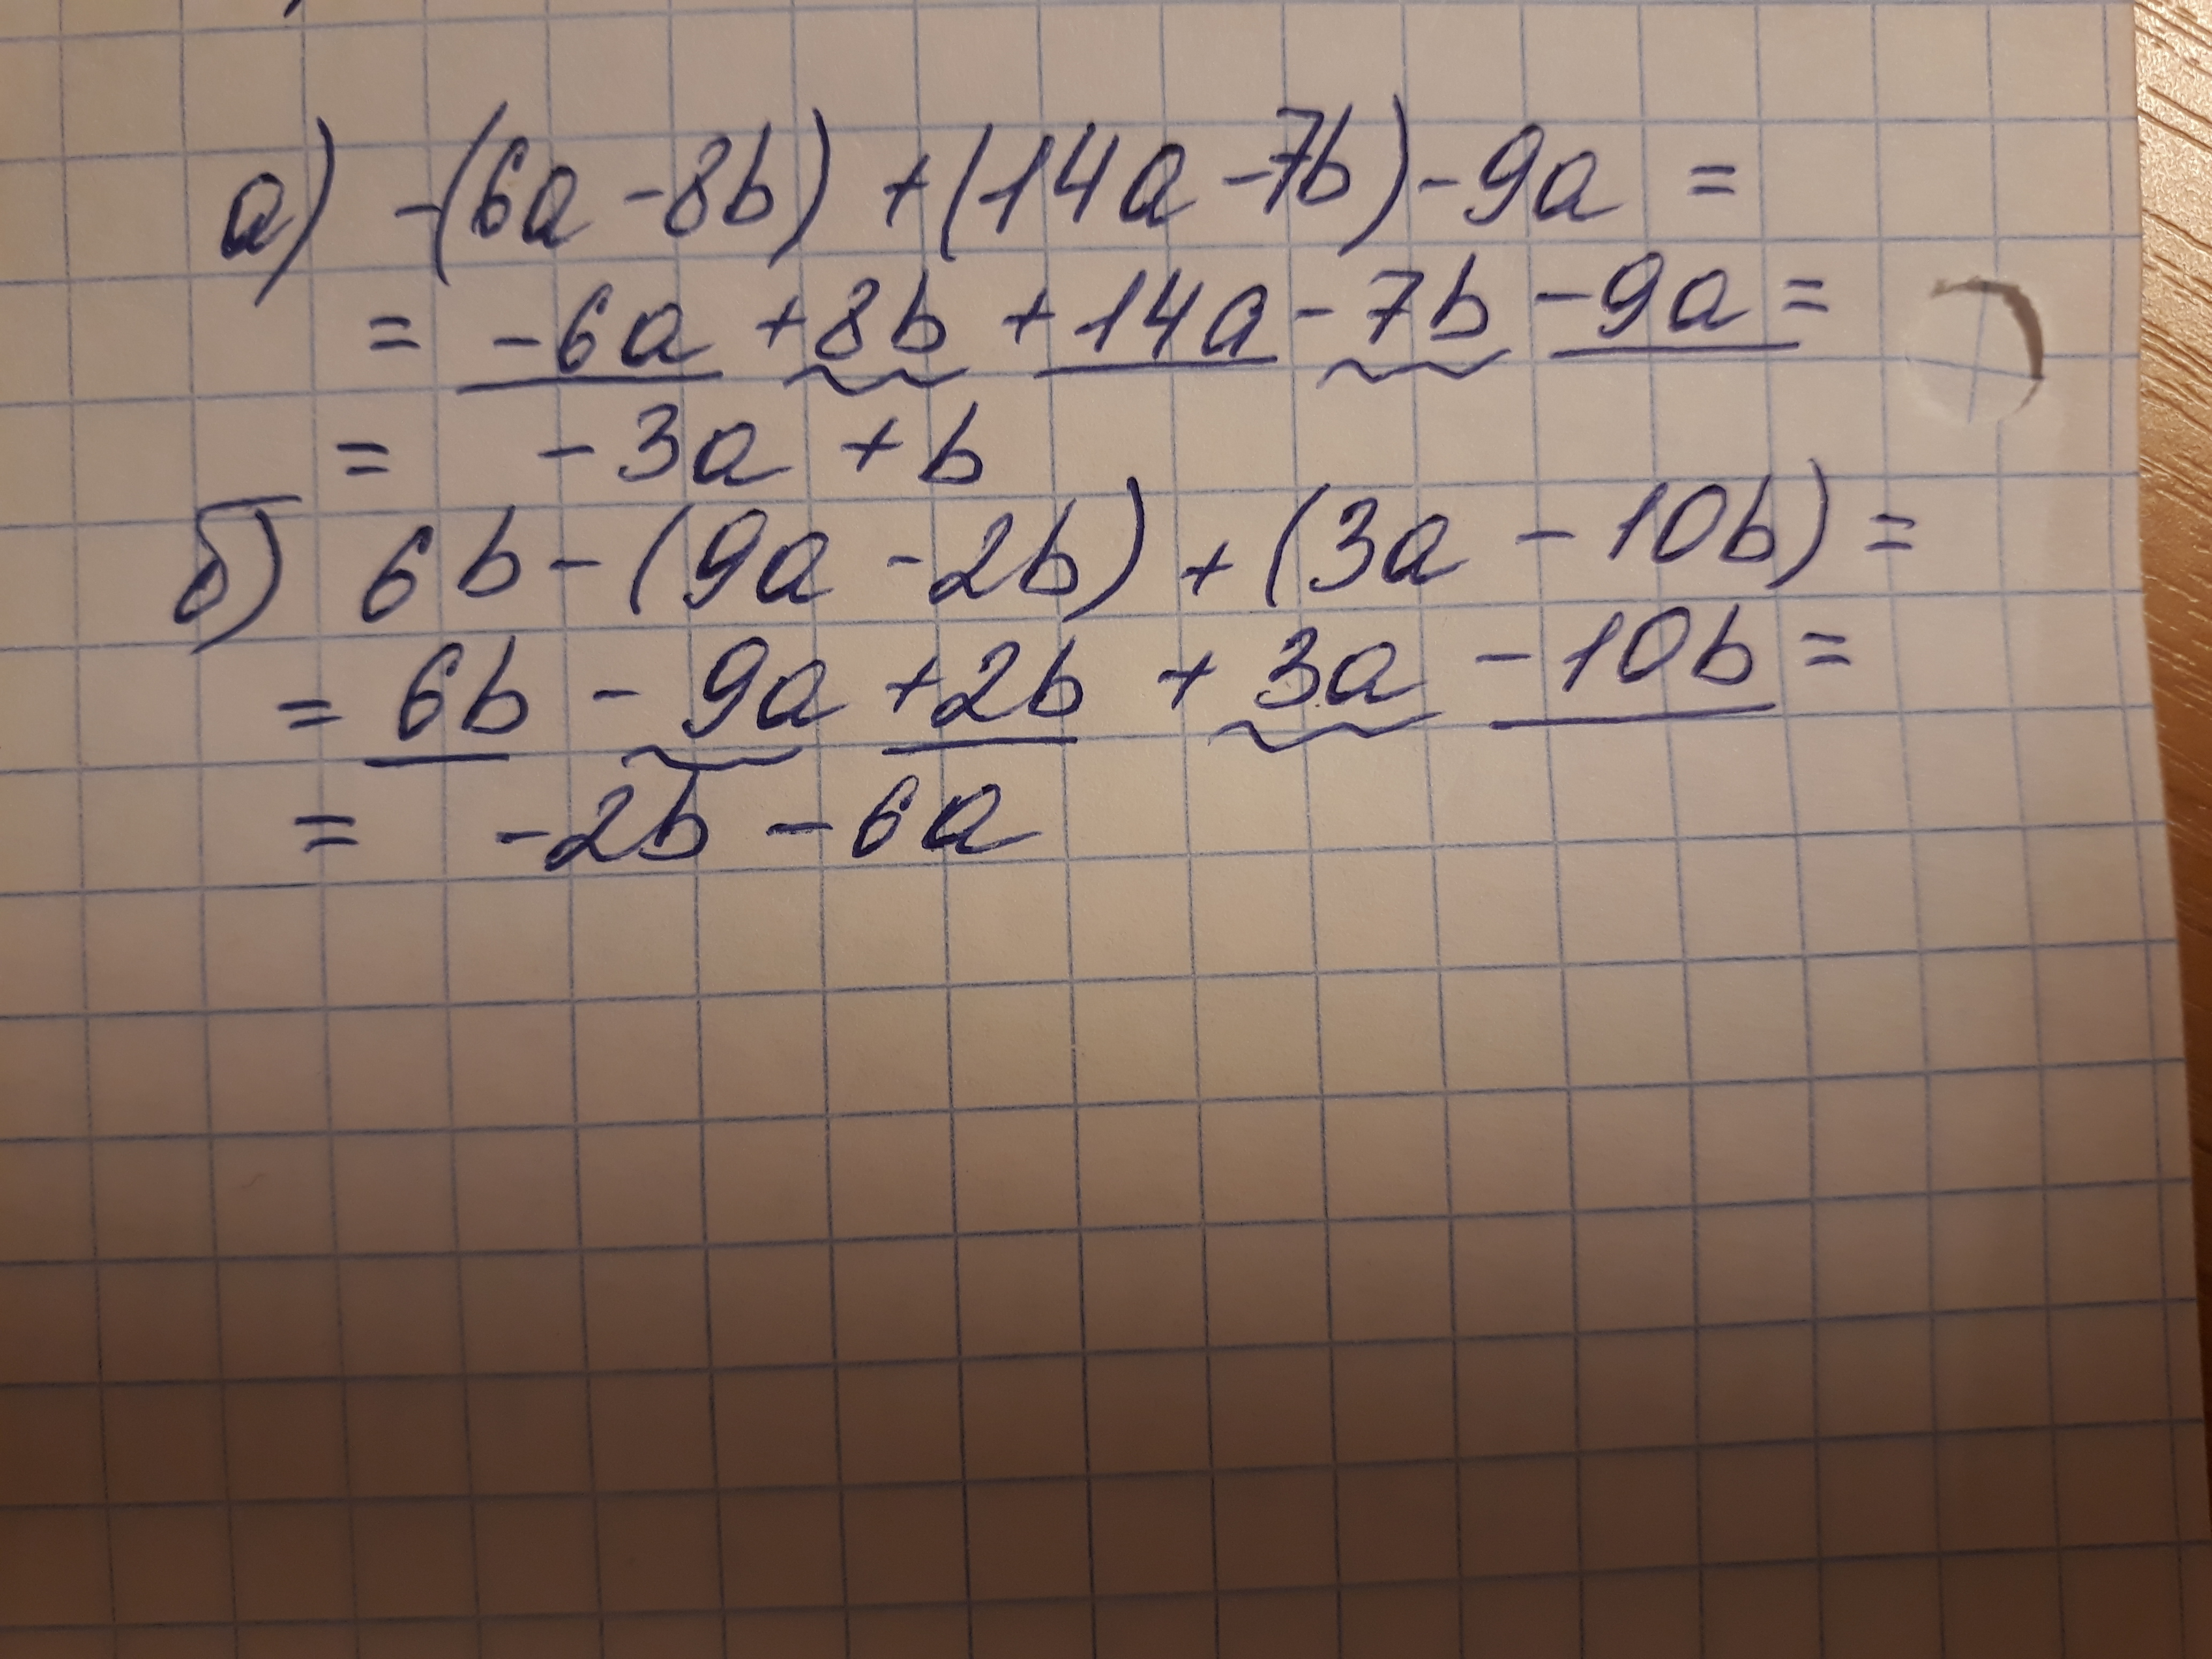 а) -(6a - 8b) + (14a - 7b) - 9a =
= -6a + 8b + 14a - 7b - 9a =
= -3a + b
б) 6b - (9a - 2b) + (3a - 10b) =
= 6b - 9a + 2b + 3a - 10b =
= -2b - 6a